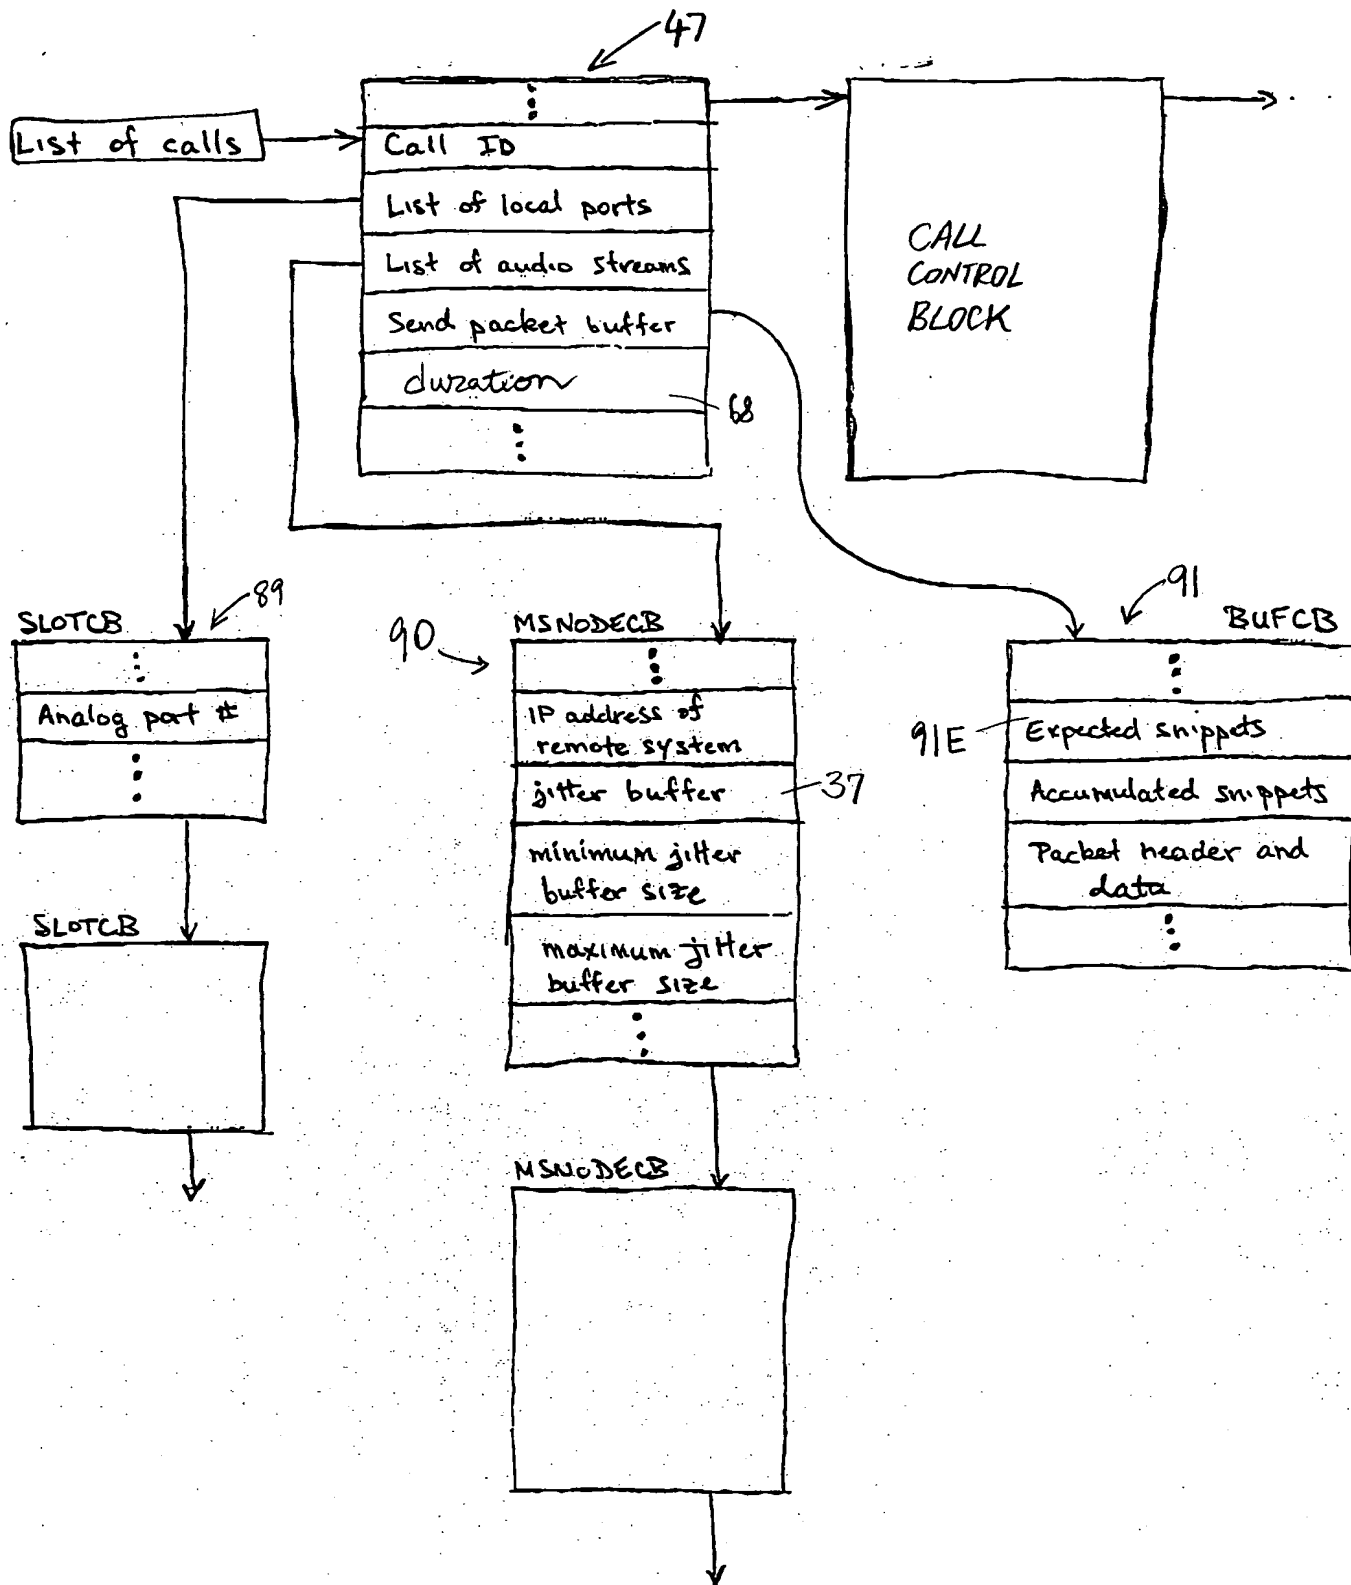 47
List of calls
Call ID
List of local ports
List of audio streams
Send packet buffer
duration
68
CALL
CONTROL
BLOCK
SLOTCB
89
Analog port #
SLOTCB
90
MSNODECB
IP address of
remote system
jitter buffer
37
minimum jitter
buffer size
maximum jitter
buffer size
MSNODECB
91
BUFCB
91E
Expected snippets
Accumulated snippets
Packet header and
data